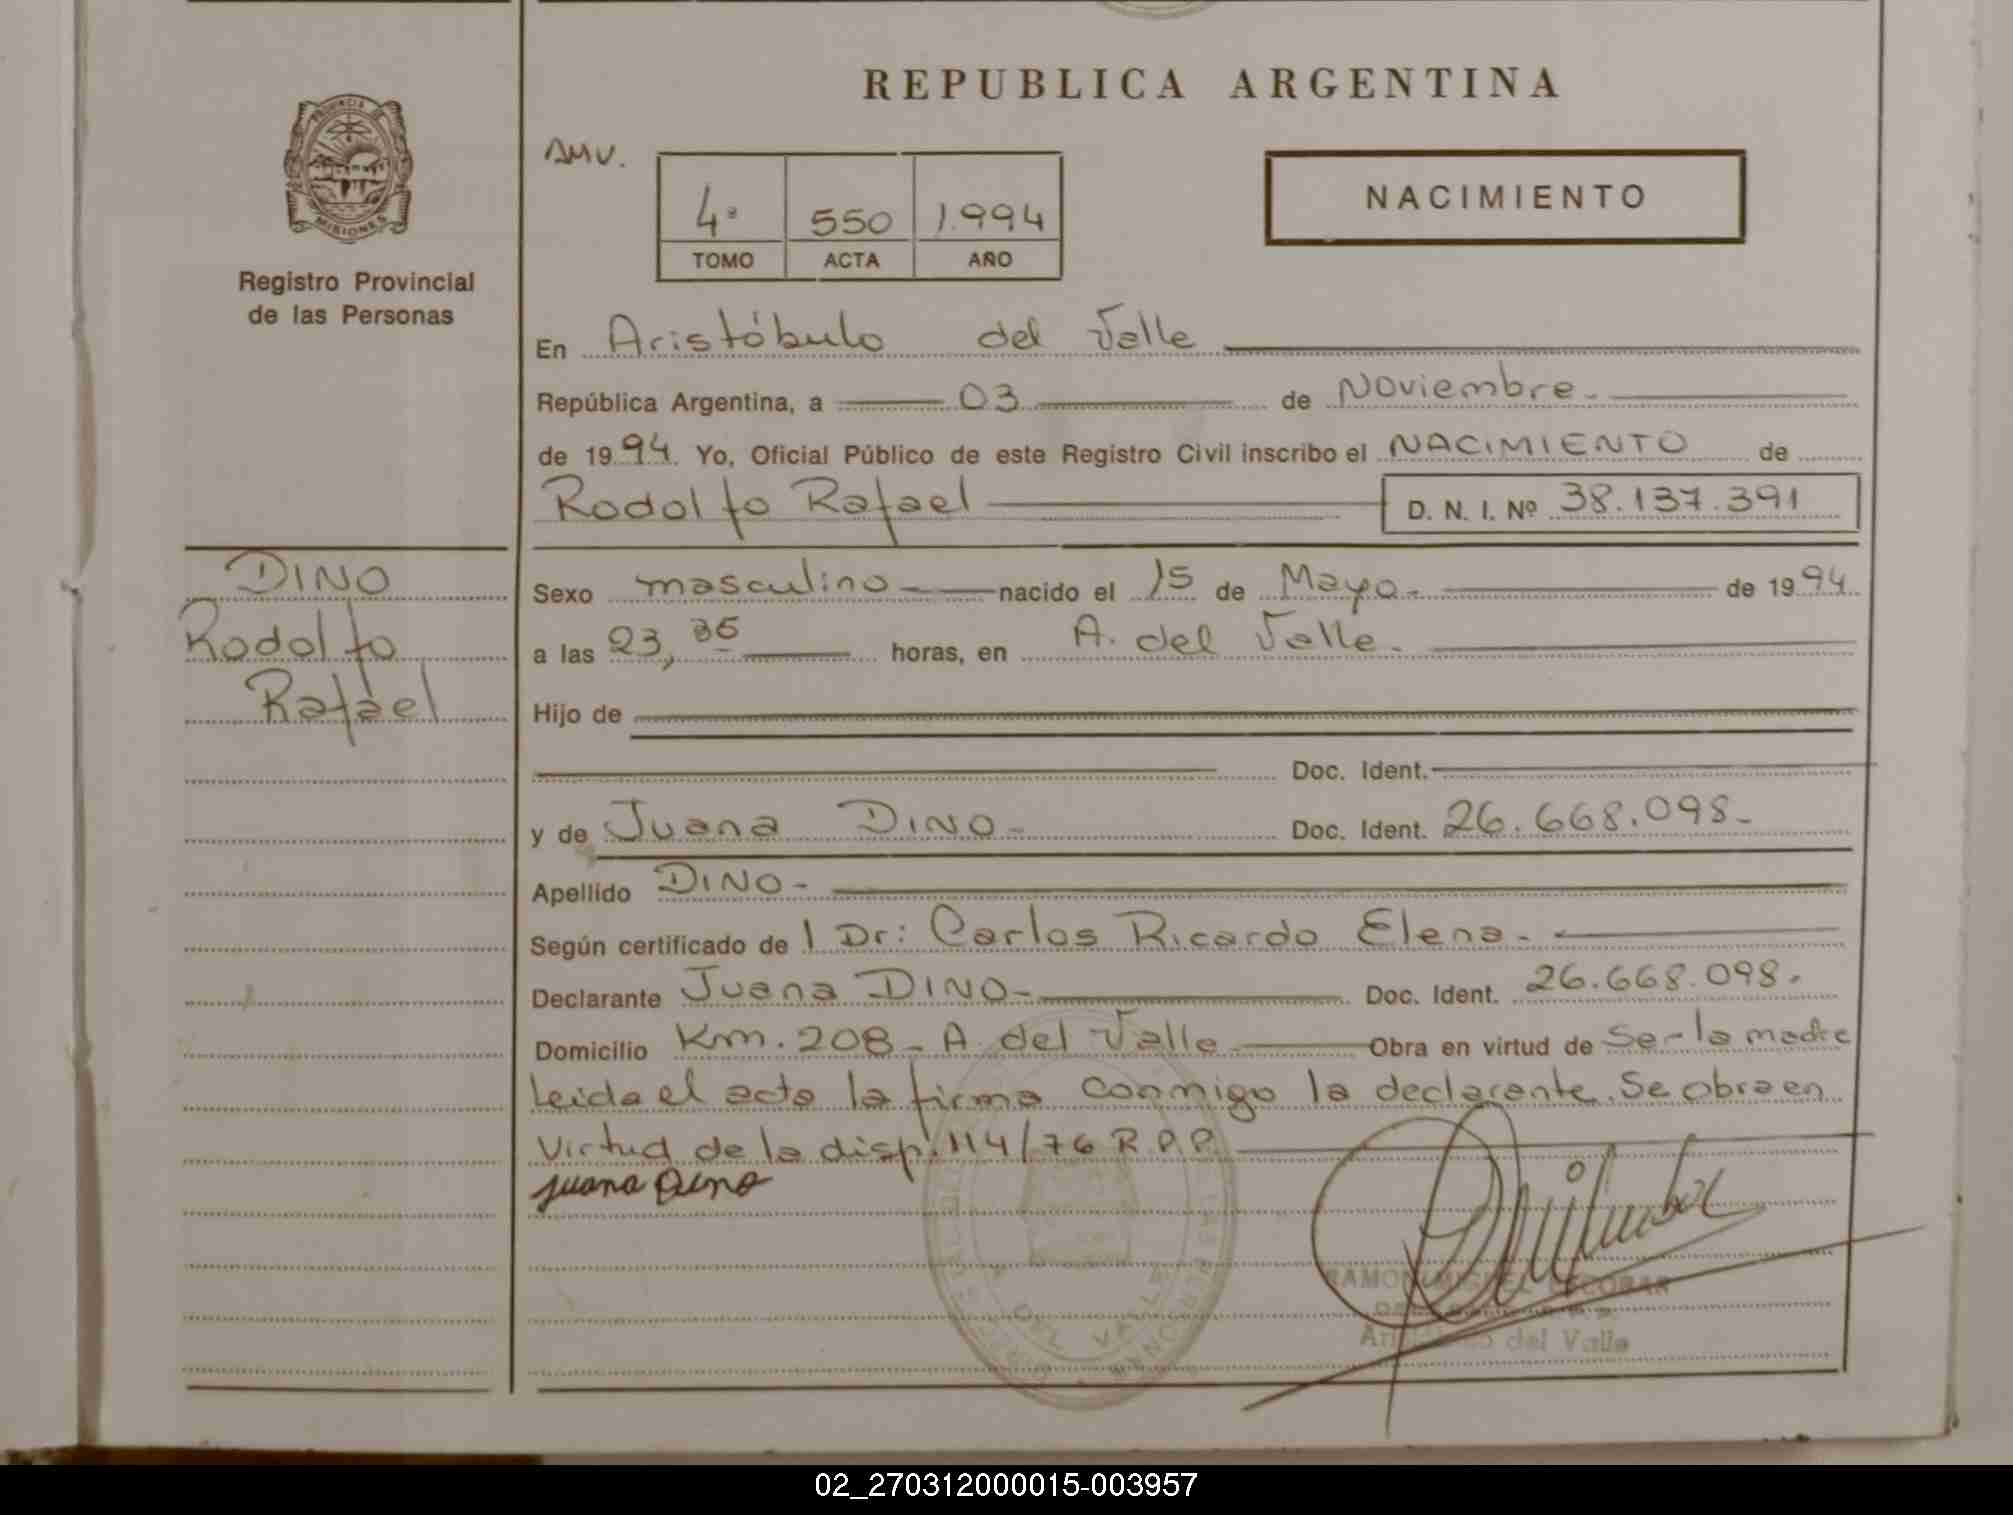 REPUBLICA ARGENTINA
PROVINCIA DE
MISIONES
Registro Provincial
de las Personas
AMV.
4ª 550 1.994
TOMO ACTA AÑO
NACIMIENTO
En Aristóbulo del Valle
República Argentina, a 03 de Noviembre.
de 1994. Yo, Oficial Público de este Registro Civil inscribo el NACIMIENTO de
Rodolfo Rafael D. N. I. Nº 38.137.391
DINO
Rodolfo
Rafael
Sexo masculino nacido el 15 de Mayo. de 1994.
a las 23,35 horas, en A. del Valle.
Hijo de
Doc. Ident.
y de Juana DINO- Doc. Ident. 26.668.098.-
Apellido DINO-
Según certificado de l Dr: Carlos Ricardo Elena-
Declarante Juana DINO- Doc. Ident. 26.668.098.
Domicilio Km. 208 - A. del Valle Obra en virtud de Ser la madre
Leida el acta la firma conmigo la declarante. Se obra en
virtud de la disp. 114/76 R.P.P.
Juana Dino
DEL VALLE
RAMON MIGUEL ESCOBAR
del Valle
02_270312000015-003957